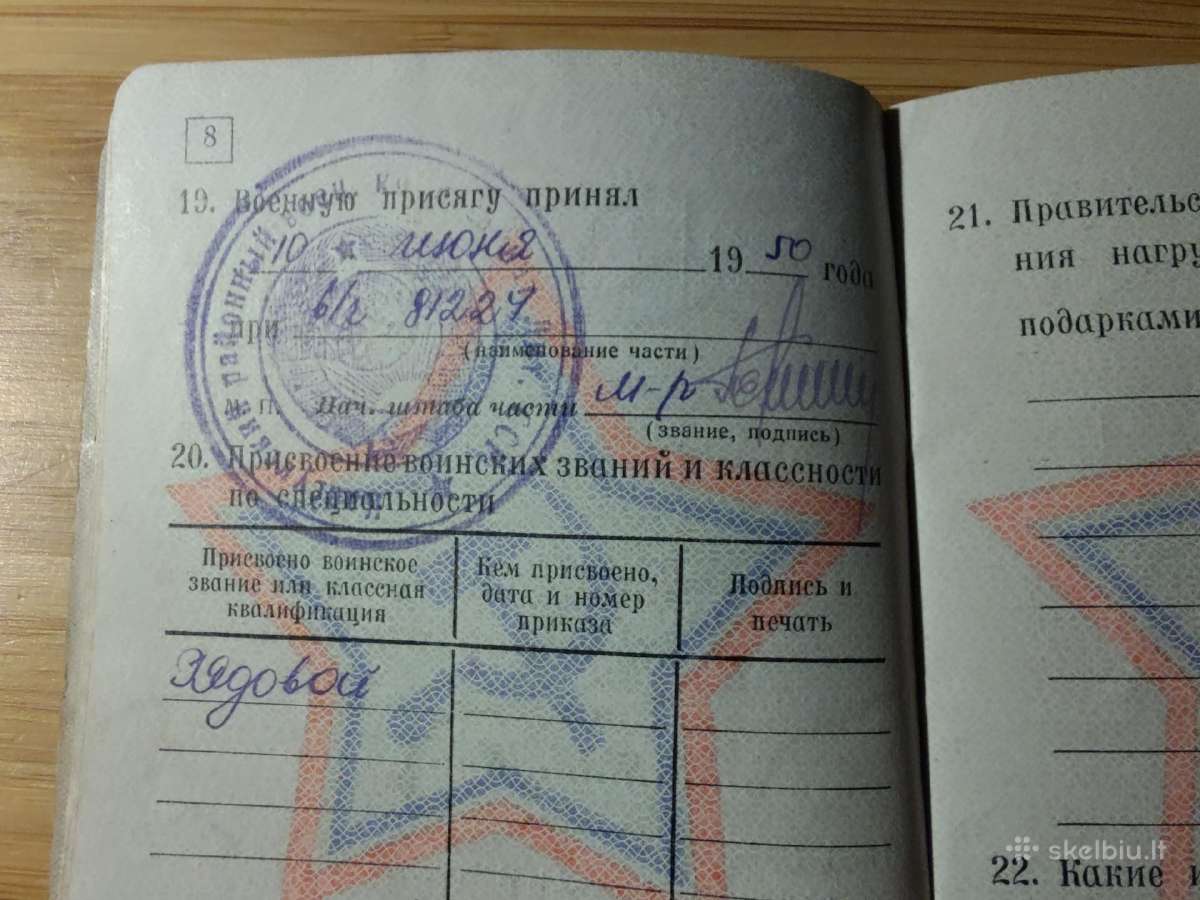 8
19. Военную присягу принял
10 июня 19 50 года
при в/ч 81227
(наименование части)
м. п. Нач. штаба части м-р
(звание, подпись)
20. Присвоение воинских званий и классности
по специальности
Присвоено воинское
звание или классная
квалификация
Кем присвоено,
дата и номер
приказа
Подпись и
печать
Рядовой
районный
ССР
21. Правительс
ния нагру
подарками
22. Какие и
skelbiu.lt